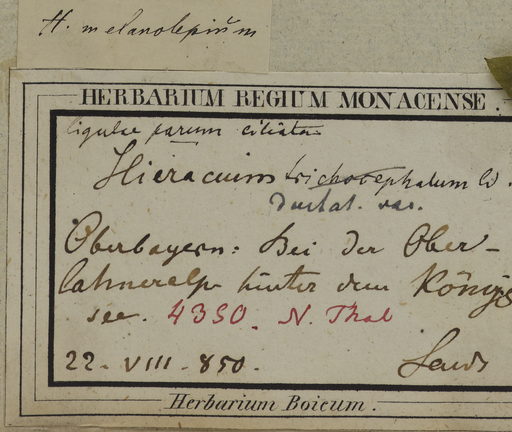 H. melanolepium
HERBARIUM REGIUM MONACENSE.
ligulae parum ciliatae
Hieracium trichocephalum W.
var.
Oberbayern: Bei der Ober-
lahneralp hinter dem Königs
see. 4350. N. Thal
22. VIII. 850.
Herbarium Boicum.